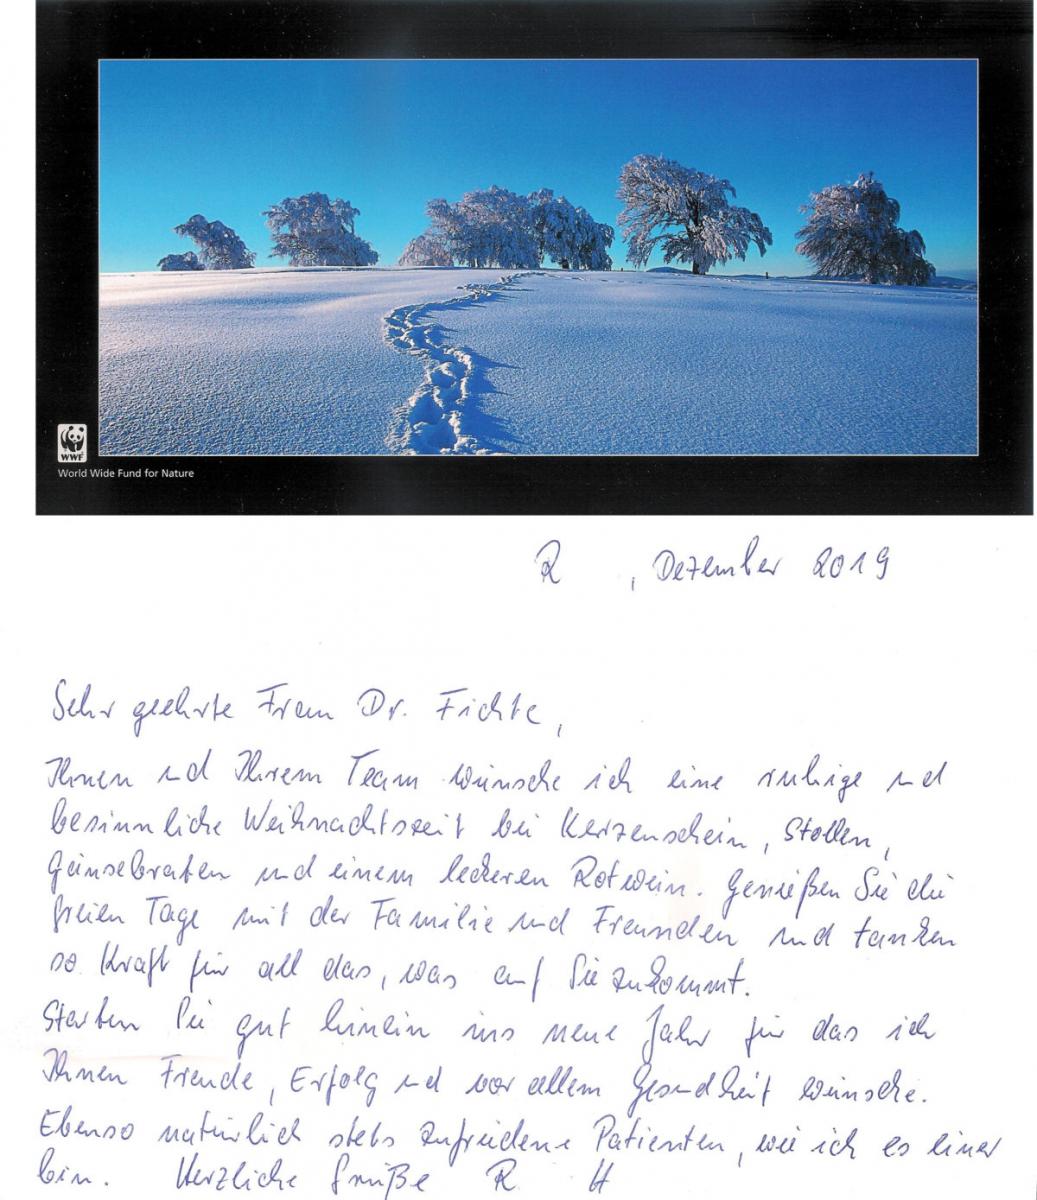 WWF
World Wide Fund for Nature
R , Dezember 2019
Sehr geehrte Frau Dr. Fichte,
Ihnen und Ihrem Team wünsche ich eine ruhige und
besinnliche Weihnachtszeit bei Kerzenschein, Stollen,
Gänsebraten und einem leckeren Rotwein. Genießen Sie die
freien Tage mit der Familie und Freunden und tanken
so Kraft für all das, was auf Sie zukommt.
Starten Sie gut hinein ins neue Jahr für das ich
Ihnen Freude, Erfolg und vor allem Gesundheit wünsche.
Ebenso natürlich stets zufriedene Patienten, wie ich es einer
bin. Herzliche Grüße R H